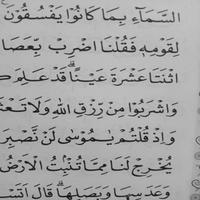 السَّمَآءِ بِمَا كَانُوْا يَفْسُقُوْنَ
لِقَوْمِهٖ فَقُلْنَا اضْرِبْ بِّعَصَا
اثْنَتَا عَشْرَةَ عَيْنًا ؕ قَدْ عَلِمَ كُ
وَاشْرَبُوْا مِنْ رِّزْقِ اللّٰهِ وَلَا تَعْثَ
وَاِذْ قُلْتُمْ يٰمُوْسٰى لَنْ نَّصْبِرَ
يُخْرِجْ لَنَا مِمَّا تُنْۢبِتُ الْاَرْضُ
وَعَدَسِهَا وَبَصَلِهَا ؕ قَالَ اَتَسْ